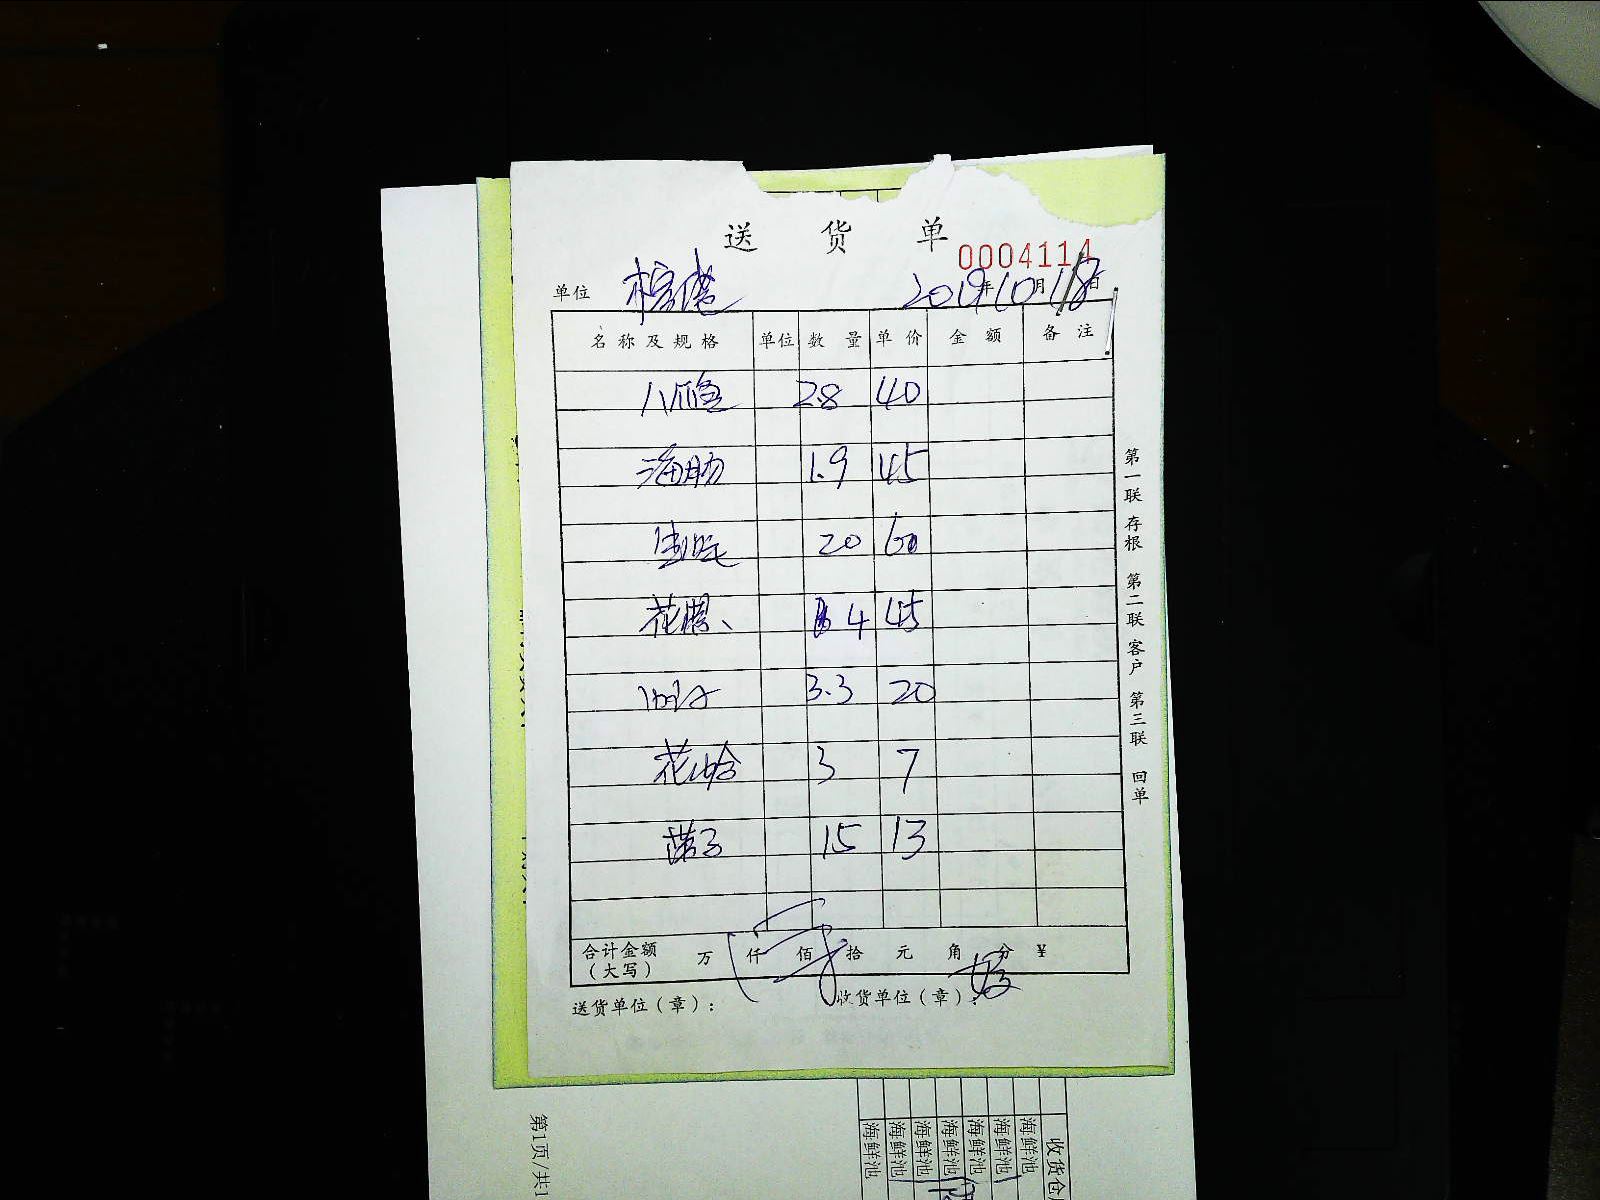 送 货 单
0004114
单位 2019年10月18日
名称及规格 单位 数量 单价 金额 备注
八爪鱼 2.8 40
海肠 1.9 45
20 60
花螺 4 45
3.3 20
花蛤 3 7
15 13
合计金额(大写) 万 仟 佰 拾 元 角 分 ¥
送货单位(章): 收货单位(章):
第一联 存根 第二联 客户 第三联 回单
第1页/共1
收货仓
海鲜池
海鲜池
海鲜池
海鲜池
海鲜池
海鲜池
海鲜池